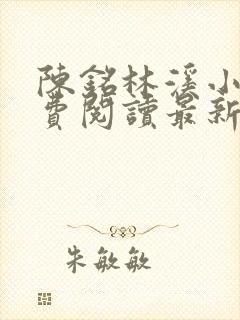 陳銘林溪小
費閱讀最新
朱敏敏